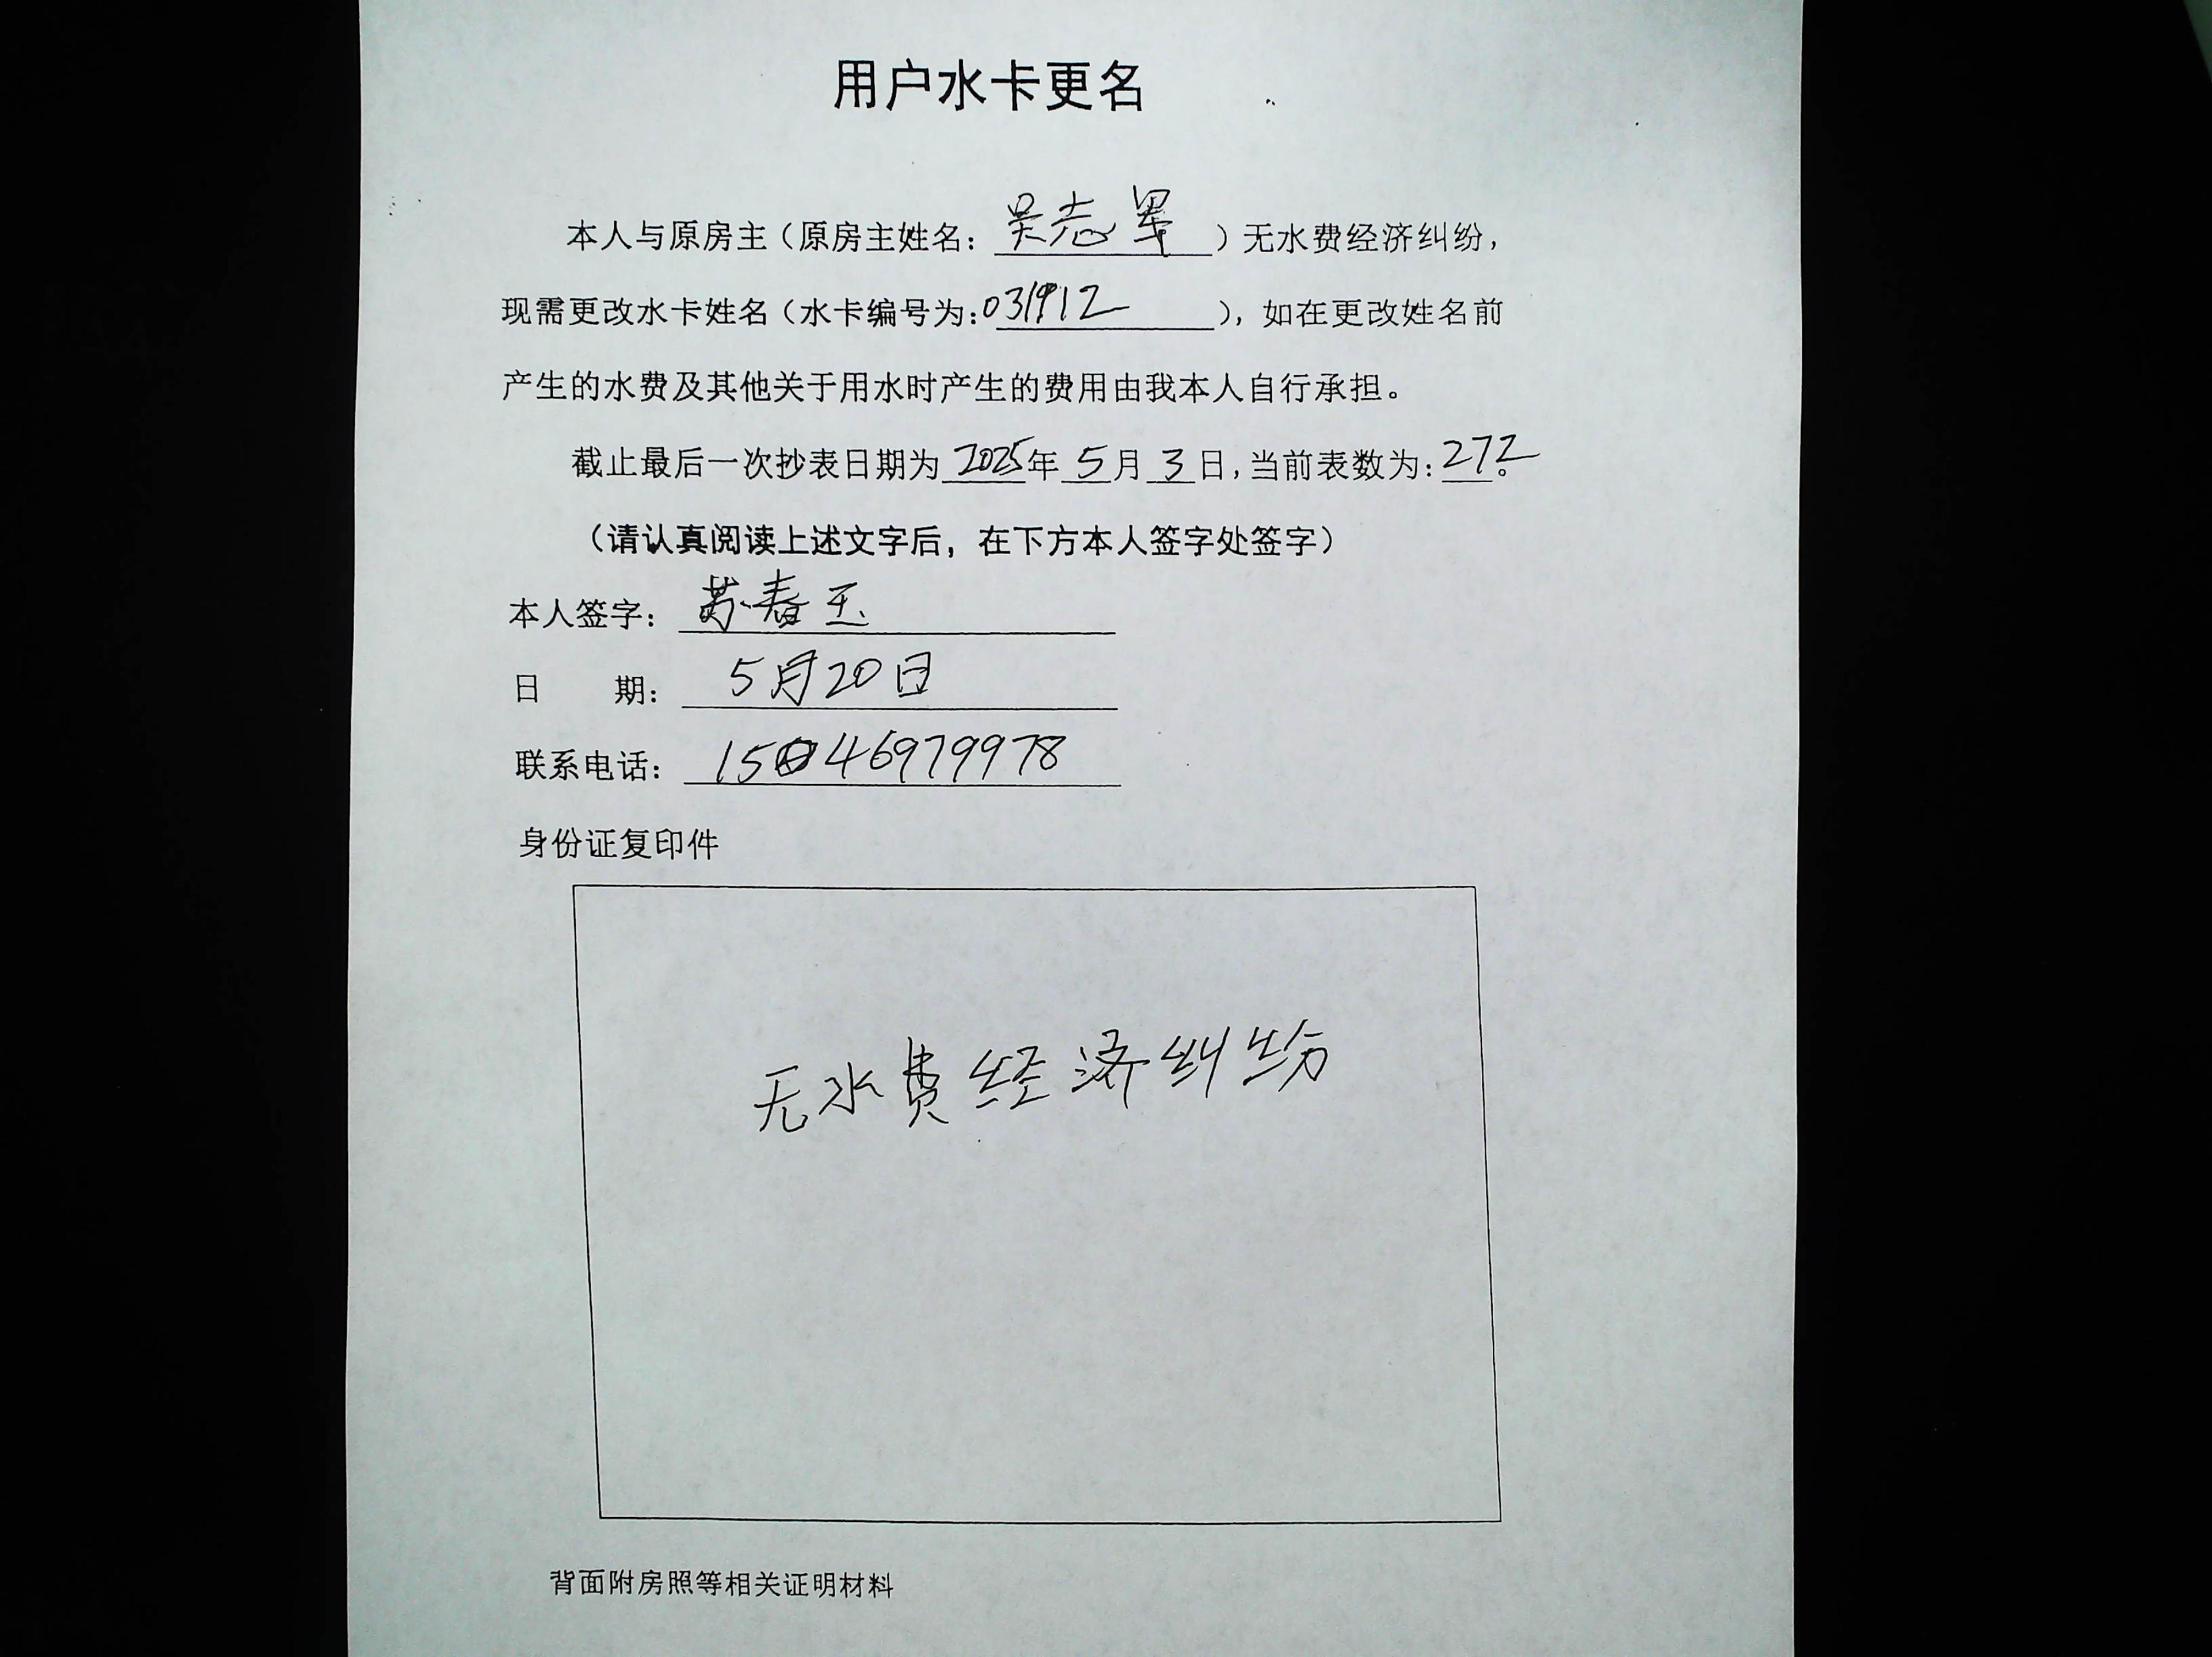 用户水卡更名
本人与原房主（原房主姓名：吴志军）无水费经济纠纷，
现需更改水卡姓名（水卡编号为：031912），如在更改姓名前
产生的水费及其他关于用水时产生的费用由我本人自行承担。
截止最后一次抄表日期为2025年5月3日，当前表数为：272。
（请认真阅读上述文字后，在下方本人签字处签字）
本人签字：苏春玉
日 期：5月20日
联系电话：15046979978
身份证复印件
无水费经济纠纷
背面附房照等相关证明材料